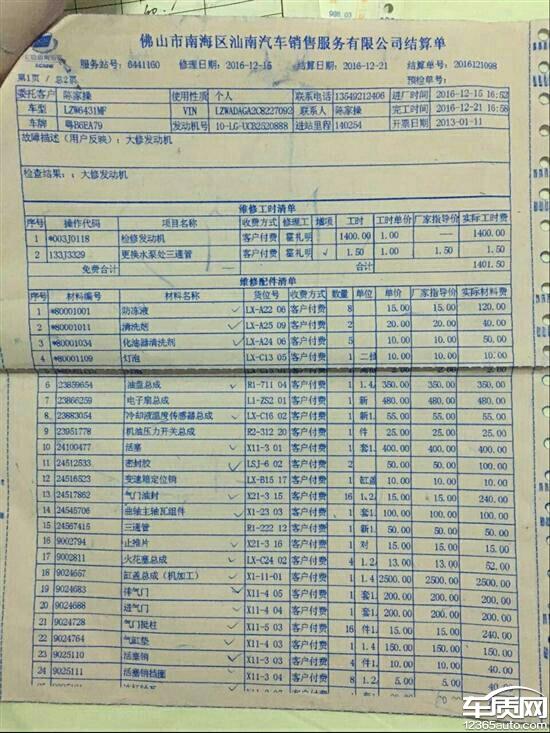 988.03
佛山市南海区汕南汽车销售服务有限公司结算单
服务站号: 6441160 修理日期: 2016-12-15 结算日期: 2016-12-21 结算单号: 2016121098
第1页 / 总2页 预检单号:
委托客户 陈家操 使用性质 个人 联系电话 13549212406 进厂时间 2016-12-15 16:52
车型 LZW6431MF VIN LZWADAGA2C8227092 联系人 陈家操 完工时间 2016-12-21 16:58
车牌 粤B6EA79 发动机号 10-LG-UCB2520888 进站里程 140254 开票日期 2013-01-11
故障描述(用户反映): 大修发动机
检查结果: : 大修发动机
维修工时清单
序号 操作代码 项目名称 收费方式 修理工 增项 工时 工时单价 厂家指导价 实际工时费
1 *003J0118 检修发动机 客户付费 霍礼明 1400.00 1.00 —— 1400.00
2 133J3329 更换水泵处三通管 客户付费 霍礼明 √ 1.50 1.00 1.50 1.50
免费合计 —— 合计 1401.50
维修配件清单
序号 材料编号 材料名称 货位号 收费方式 数量 单位 单价 厂家指导价 实际材料费
1 *80001001 防冻液 LX-A22 06 客户付费 8 15.00 15.00 120.00
2 *80001011 清洗剂 LX-A25 09 客户付费 2 20.00 20.00 40.00
3 *80001034 化油器清洗剂 LX-A24 06 客户付费 5 10.00 10.00 50.00
4 *80001109 灯泡 LX-C13 05 客户付费 1 10.00 10.00 10.00
6 23859654 油盘总成 R1-711 04 客户付费 1 1.4 350.00 350.00 350.00
7 23866259 电子扇总成 L1-ZS2 01 客户付费 1 新 480.00 480.00 480.00
8 23883054 冷却液温度传感器总成 LX-C16 02 客户付费 1 新1. 55.00 55.00 55.00
9 23951778 机油压力开关总成 R2-312 20 客户付费 1 件 25.00 25.00 25.00
10 24100477 活塞 X11-3 01 客户付费 1 套1. 400.00 400.00 400.00
11 24512533 密封胶 LSJ-6 02 客户付费 2 50.00 50.00 100.00
12 24516523 变速箱定位销 LX-B15 17 客户付费 1 缸盖 10.00 10.00 10.00
13 24517862 气门油封 X21-3 15 客户付费 16 1.2 15.00 15.00 240.00
14 24545706 曲轴主轴瓦组件 X1-23 03 客户付费 1 套1. 100.00 100.00 100.00
15 24567415 三通管 R1-222 12 客户付费 1 新1. 50.00 50.00 50.00
16 9002794 止推片 X21-3 16 客户付费 1 对 15.00 15.00 15.00
17 9002811 火花塞总成 LX-C24 02 客户付费 4 1.2 13.00 13.00 52.00
18 9024657 缸盖总成(机加工) X1-11-01 客户付费 1 1.4 2500.00 2500.00 2500.00
19 9024683 排气门 X11-4 05 客户付费 1 套1. 200.00 200.00 200.00
20 9024688 进气门 X11-4 04 客户付费 1 套1. 200.00 200.00 200.00
21 9024728 气门挺柱 X11-5 03 客户付费 16 件1. 15.00 15.00 240.00
22 9024764 气缸垫 X11-4 03 客户付费 1 1.4 150.00 150.00 150.00
23 9025110 活塞销 X11-3 03 客户付费 4 件 10.00 10.00 40.00
24 9025111 活塞销挡圈 X11-3 04 客户付费 8 1.2 5.00 5.00 40.00
车质网
www.12365auto.com